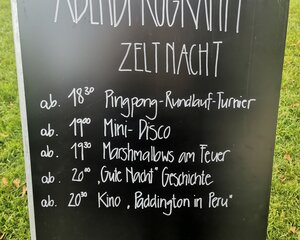 ABENDPROGRAMM
ZELTNACHT
ab. 18³⁰ Pingpong-Rundlauf-Turnier
ab. 19⁰⁰ Mini-Disco
ab. 19³⁰ Marshmallows am Feuer
ab. 20⁰⁰ „Gute Nacht" Geschichte
ab. 20³⁰ Kino „Paddington in Peru"